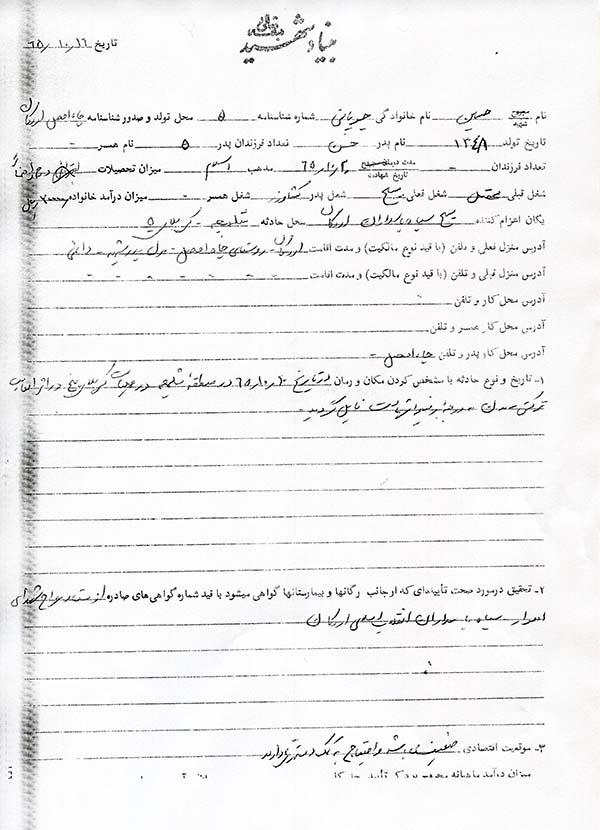 بنیاد شهید
تاریخ ۶۵/۱۰/۱۶
نام حسین نام خانوادگی شماره شناسنامه ۵ محل تولد و صدور شناسنامه چاه افضل اردکان
تاریخ تولد ۱۳۴۸ نام پدر حسن تعداد فرزندان پدر ۵ نام همسر -
تعداد فرزندان - تاریخ شهادت ۶۵ مذهب اسلام میزان تحصیلات
شغل قبلی محصل شغل فعلی بسیج شغل پدر کشاورز شغل همسر - میزان درآمد خانواده
یگان اعزام کننده بسیج سپاه پاسداران اردکان محل حادثه شلمچه - کربلای ۵
آدرس منزل فعلی و تلفن (با قید نوع مالکیت) و مدت اقامت اردکان روستای چاه افضل - منزل پدر شهید - دائمی
آدرس منزل قبلی و تلفن (با قید نوع مالکیت) و مدت اقامت - - - - - -
آدرس محل کار و تلفن
آدرس محل کار همسر و تلفن
آدرس محل کار پدر و تلفن چاه افضل -
۱- تاریخ و نوع حادثه با مشخص کردن مکان و زمان در تاریخ ۶۵ در منطقه شلمچه در عملیات کربلای پنج در اثر اصابت
ترکش به بدن به درجه رفیع شهادت نایل گردید -
۲- تحقیق درمورد صحت تأییدیه‌ای که ازجانب ارگانها و بیمارستانها گواهی میشود با قید شماره گواهی‌های صادره
سپاه پاسداران انقلاب اسلامی اردکان
۳- موقعیت اقتصادی ضعیف می‌باشد و احتیاج به کمک
میزان درآمد ماهیانه